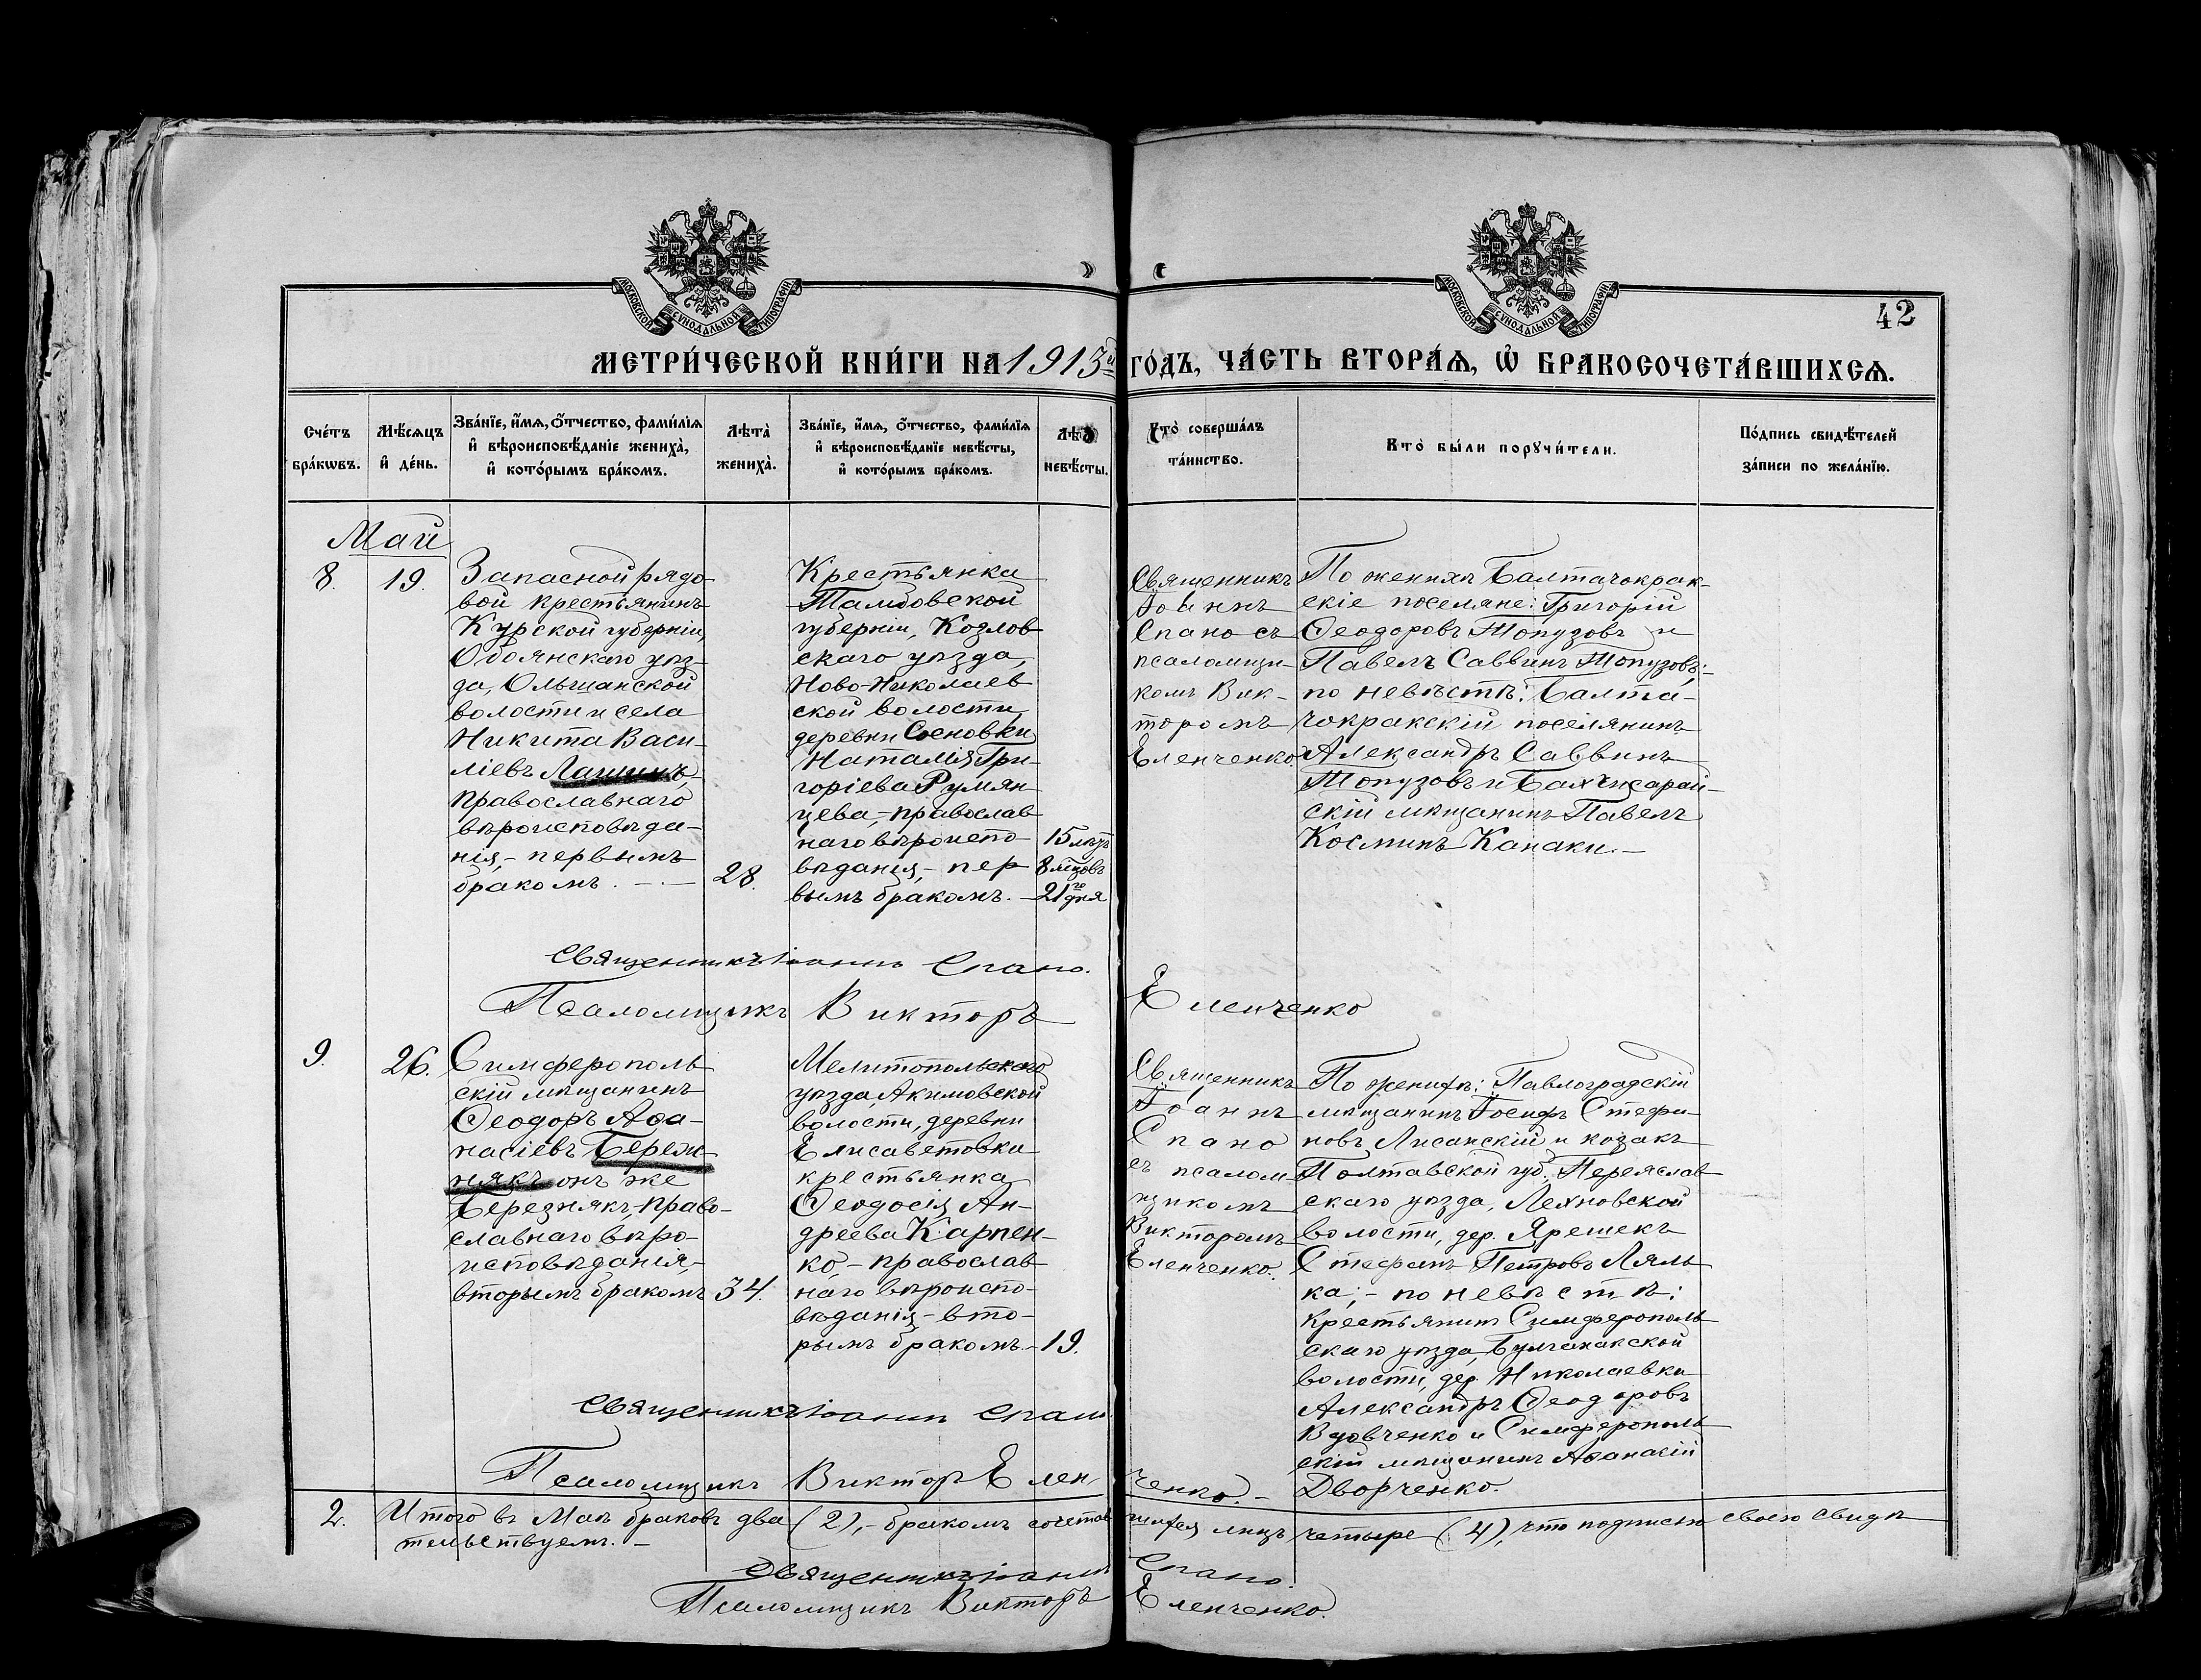 МОСКОВСКОЙ СѴНОДАЛЬНОЙ ТИПОГРАФІИ
МОСКОВСКОЙ СѴНОДАЛЬНОЙ ТИПОГРАФІИ
42
МЕТРИ́ЧЕСКОЙ КНИ́ГИ НА 1913й ГО́ДЪ, ЧА́СТЬ ВТОРА́Ѧ, Ѽ БРАКОСОЧЕТА́ВШИХСѦ.
Сче́тъ
бра́кѡвъ.
Мѣ́сѧцъ
и҆ де́нь.
Зва́нїе, и҆́мѧ, ѻ҆́тчество, фами́лїѧ
и҆ вѣроисповѣ́данїе жениха̀,
и҆ кото́рымъ бра́комъ.
Лѣта̀
жениха̀.
Зва́нїе, и҆́мѧ, ѻ҆́тчество, фами́лїѧ
и҆ вѣроисповѣ́данїе невѣ́сты,
и҆ кото́рымъ бра́комъ.
Лѣта̀
невѣ́сты.
Кто̀ соверша́лъ
та́инство.
Кто̀ бы́ли порꙋчи́тели.
По́дпись свидѣ́телей
за́писи по жела́нїю.
Май
8.
19.
Запасной рядо-
вой крестьянинъ
Курской губерніи,
Обоянскаго уѣз-
да, Ольшанской
волости и села
Никита Васи-
ліевъ Лашинъ,
православнаго
вѣроисповѣда-
нія,- первымъ
бракомъ. - —
28.
Крестьянка
Тамбовской
губерніи, Козлов
скаго уѣзда,
Ново-Николаев
ской волости
деревни Сосновки
Наталія Гри-
горіева Румян-
цева,- православ
наго вѣроиспо-
вѣданія,- пер
вымъ бракомъ. —
15 лѣтъ
8 мѣцовъ
21го дня
Священникъ
Іоаннъ
Спано съ
псаломщи-
комъ Вик-
торомъ
Еленченко.
По женихѣ Балтачокрак-
скіе поселяне: Григорій
Ѳеодоровъ Топузовъ и
Павелъ Саввинъ Топузовъ;-
по невѣстѣ: Балта-
чокракскій поселянинъ
Александръ Саввинъ
Топузовъ и Бахчисарай-
скій мѣщанинъ Павелъ
Косминъ Канаки. —
Священникъ Іоаннъ Спано.
Псаломщикъ Викторъ Еленченко
9.
26.
Симферополь
скій мѣщанинъ
Ѳеодоръ Аѳа-
насіевъ Береж-
някъ онъ же
Березнякъ,- право-
славнаго вѣро-
исповѣданія,-
вторымъ бракомъ
34.
Мелитопольскаго
уѣзда, Акимовской
волости, деревни
Елисаветовки
крестьянка
Ѳеодосія Ан-
дреева Карпен-
ко,- православ
наго вѣроиспо-
вѣданія - вто-
рымъ бракомъ. -
19.
Священникъ
Іоаннъ
Спано
съ псалом-
щикомъ
Викторомъ
Еленченко.
По женихѣ: Павлоградскій
мѣщанинъ Іосифъ Стефа-
новъ Лисанскій и козакъ
Полтавской губ., Переяслав-
скаго уѣзда, Лехновской
волости, дер. Ярешекъ
Стефанъ Петровъ Ляль
ка;- по невѣстѣ:
Крестьянинъ Симферополь
скаго уѣзда, Булганакской
волости, дер. Николаевки
Александръ Ѳеодоровъ
Вдовченко и Симферополь
скій мѣщанинъ Аѳанасій
Дворченко.
Священникъ Іоаннъ Спано.
Псаломщикъ Викторъ Еленченко. -
2. Итого въ Маѣ браковъ два (2),- бракомъ сочетавшихся лицъ четыре (4), что подписью своею свидѣ
тельствуемъ. -
Священникъ Іоаннъ Спано.
Псаломщикъ Викторъ Еленченко.